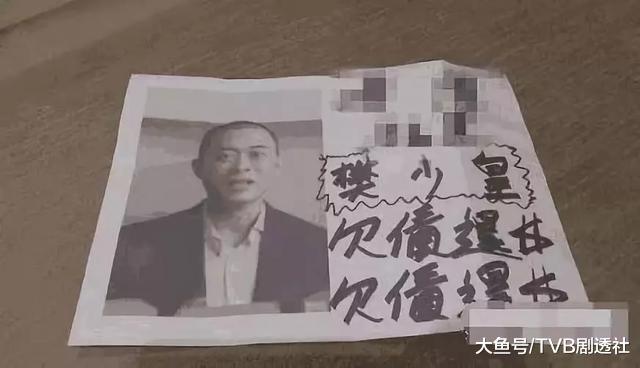 樊少皇
欠債還$
欠債還$
大鱼号/TVB剧透社